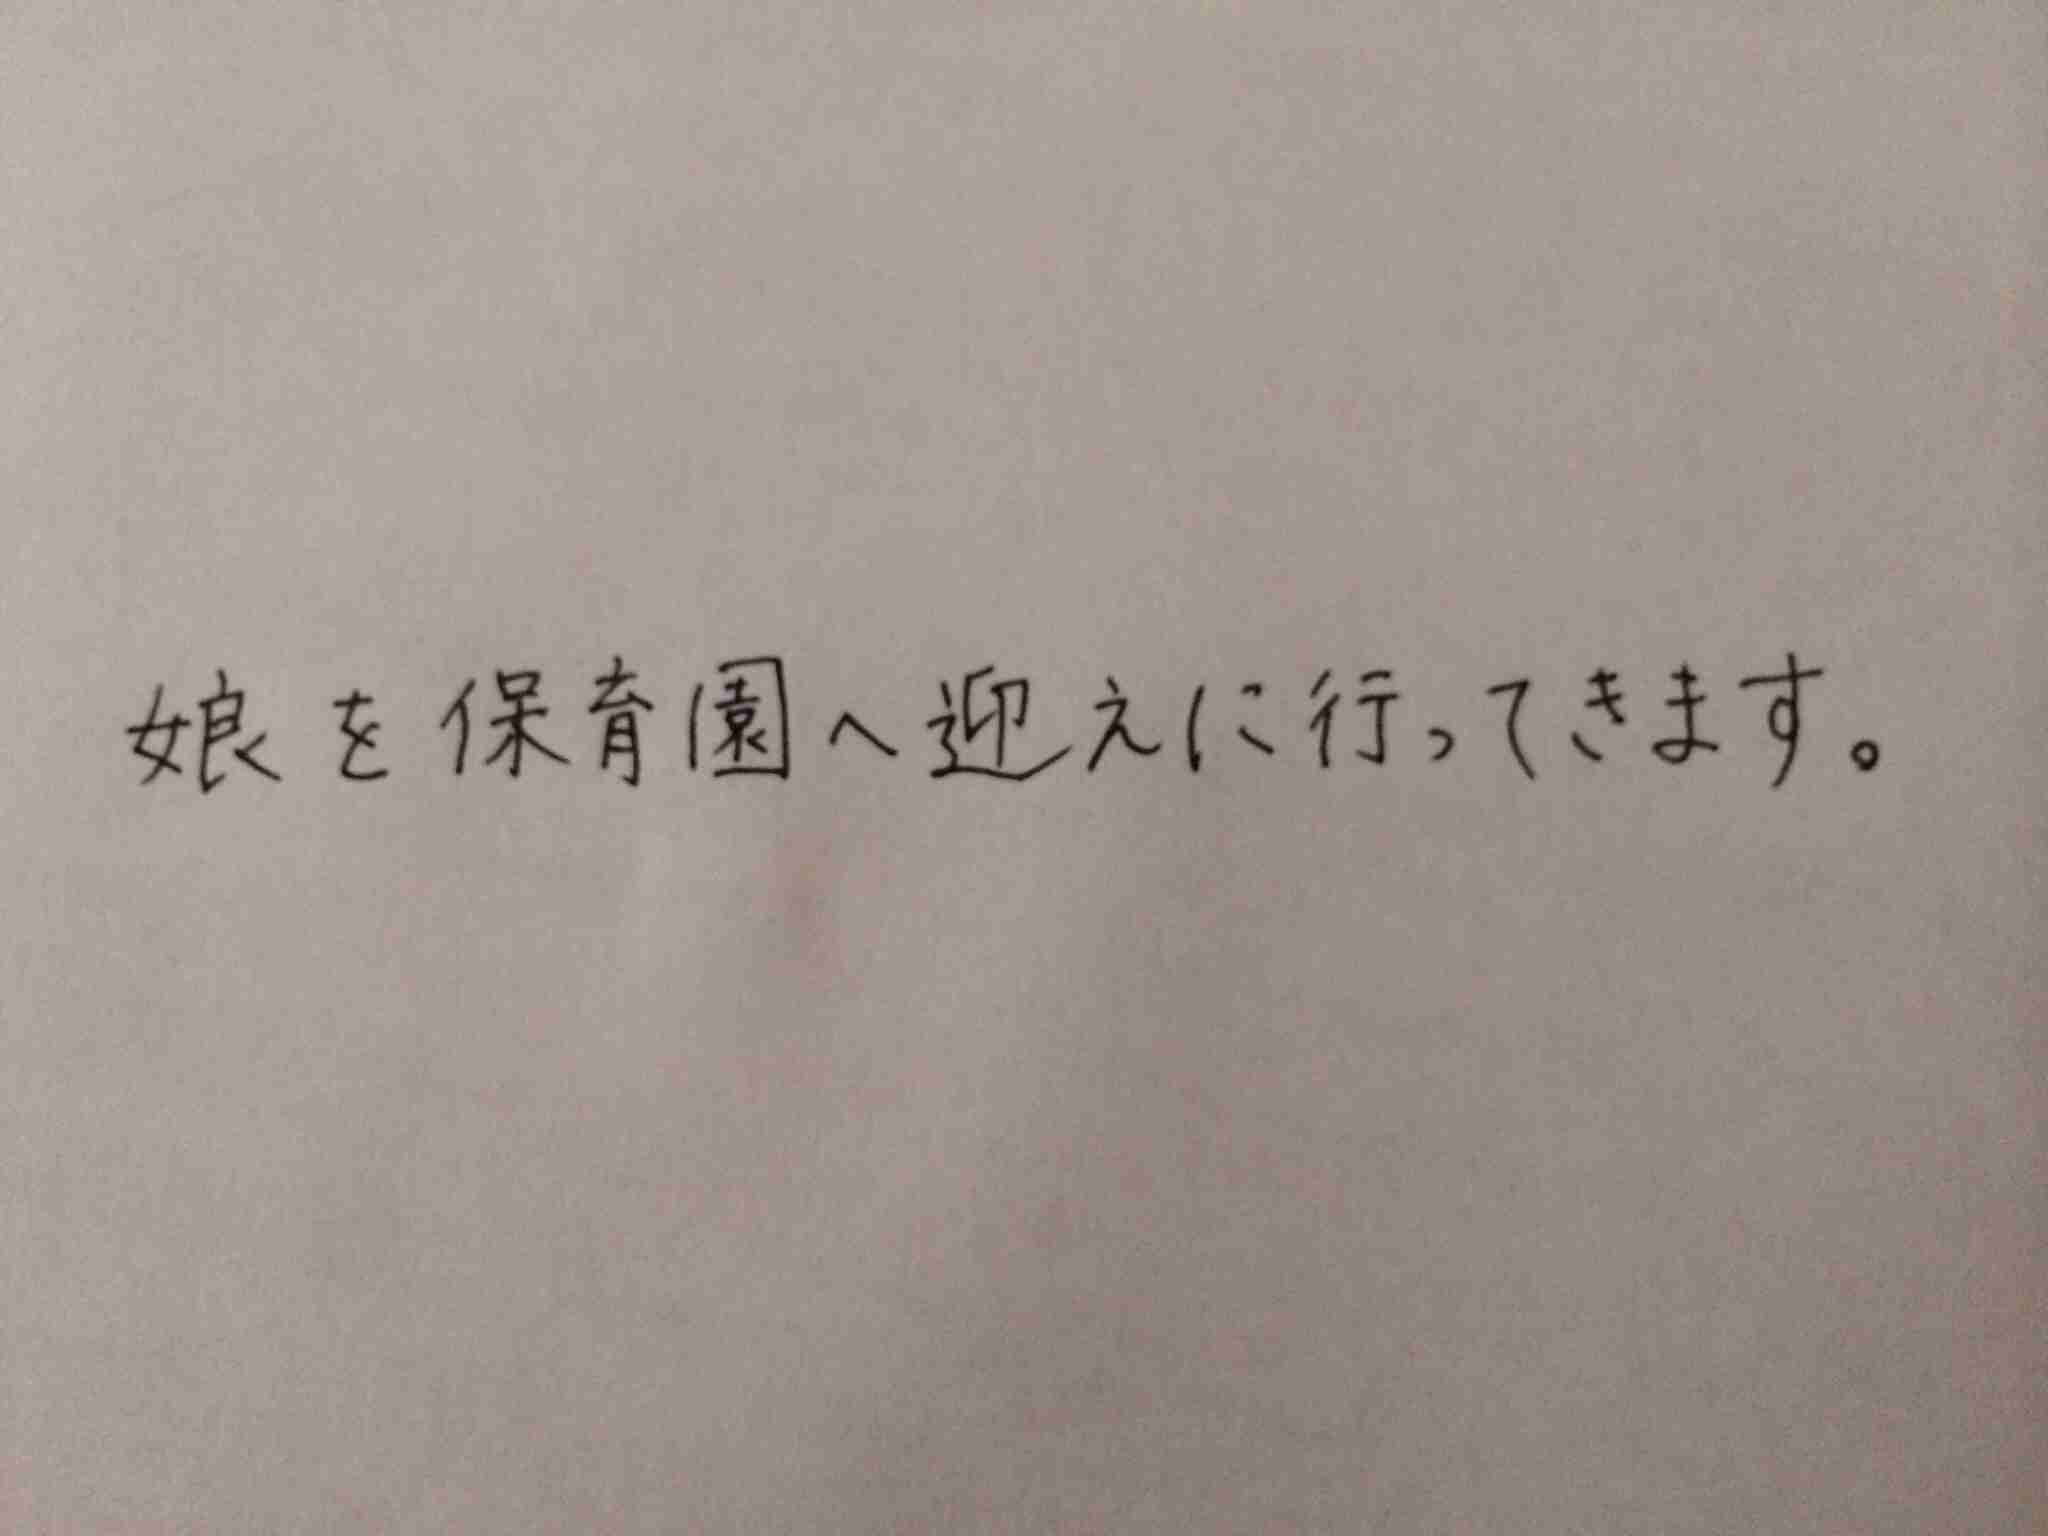 娘を保育園へ迎えに行ってきます。